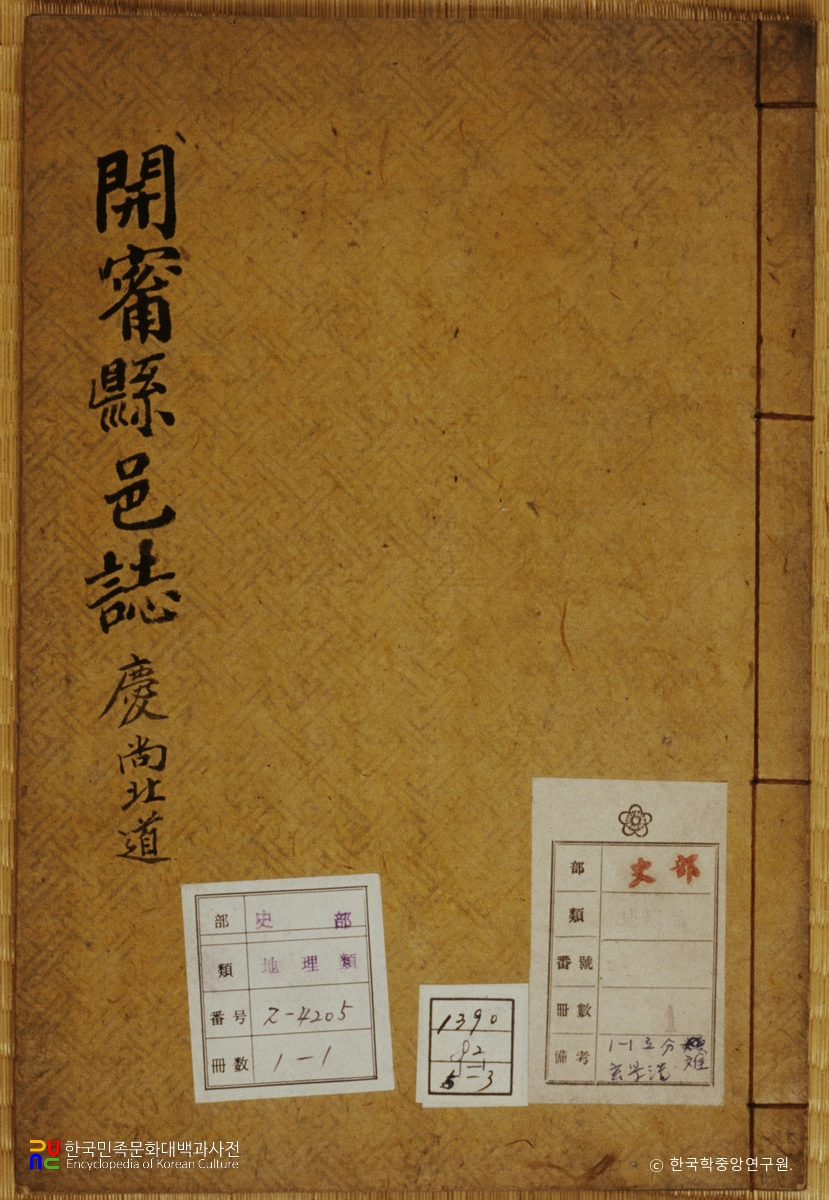 開甯縣邑誌 慶尚北道
部 史部
類 地理類
番号 Z-4205
冊数 1-1
1390
82
5-3
部 史部
類
番號
冊數
備考 1-1
한국민족문화대백과사전
Encyclopedia of Korean Culture
© 한국학중앙연구원.